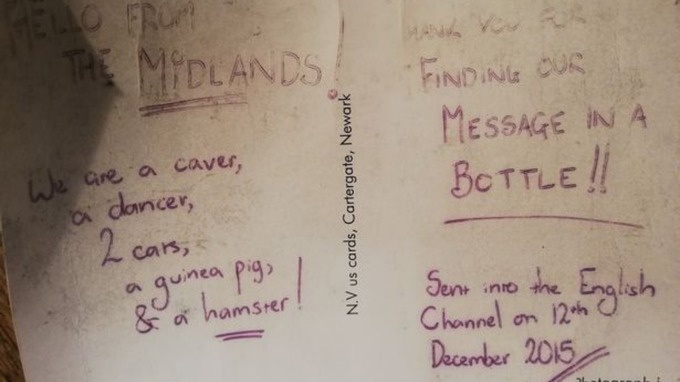 HELLO FROM
THE MIDLANDS!
We are a caver,
a dancer,
2 cars,
a guinea pig,
& a hamster!
N.V us cards, Cartergate, Newark
THANK YOU FOR
FINDING OUR
MESSAGE IN A
BOTTLE!!
Sent into the English
Channel on 12th
December 2015